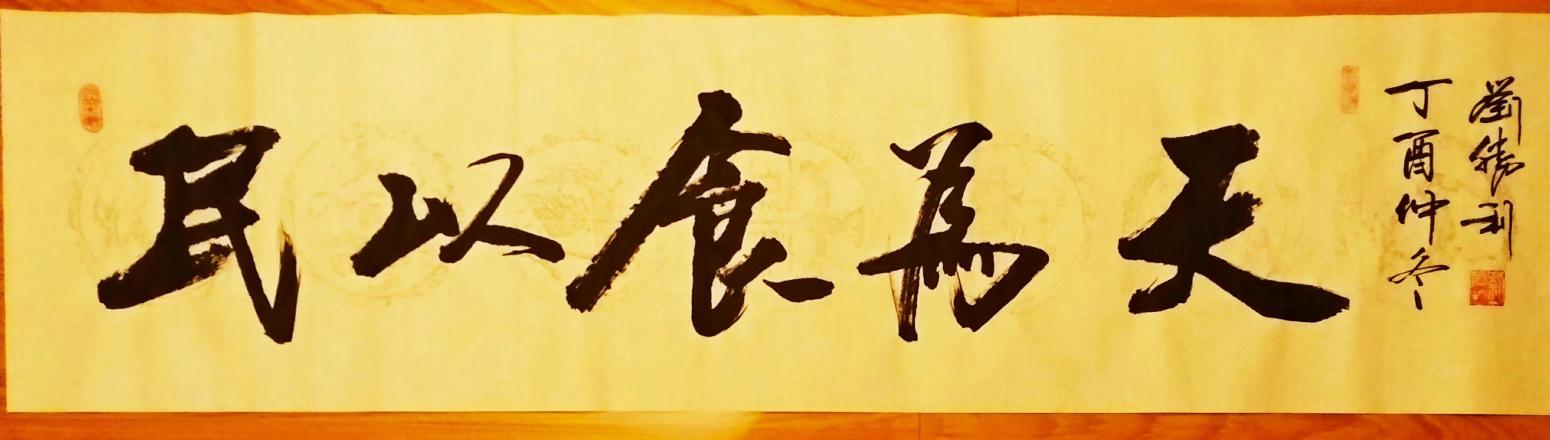 民以食為天
丁酉仲冬
劉勝利